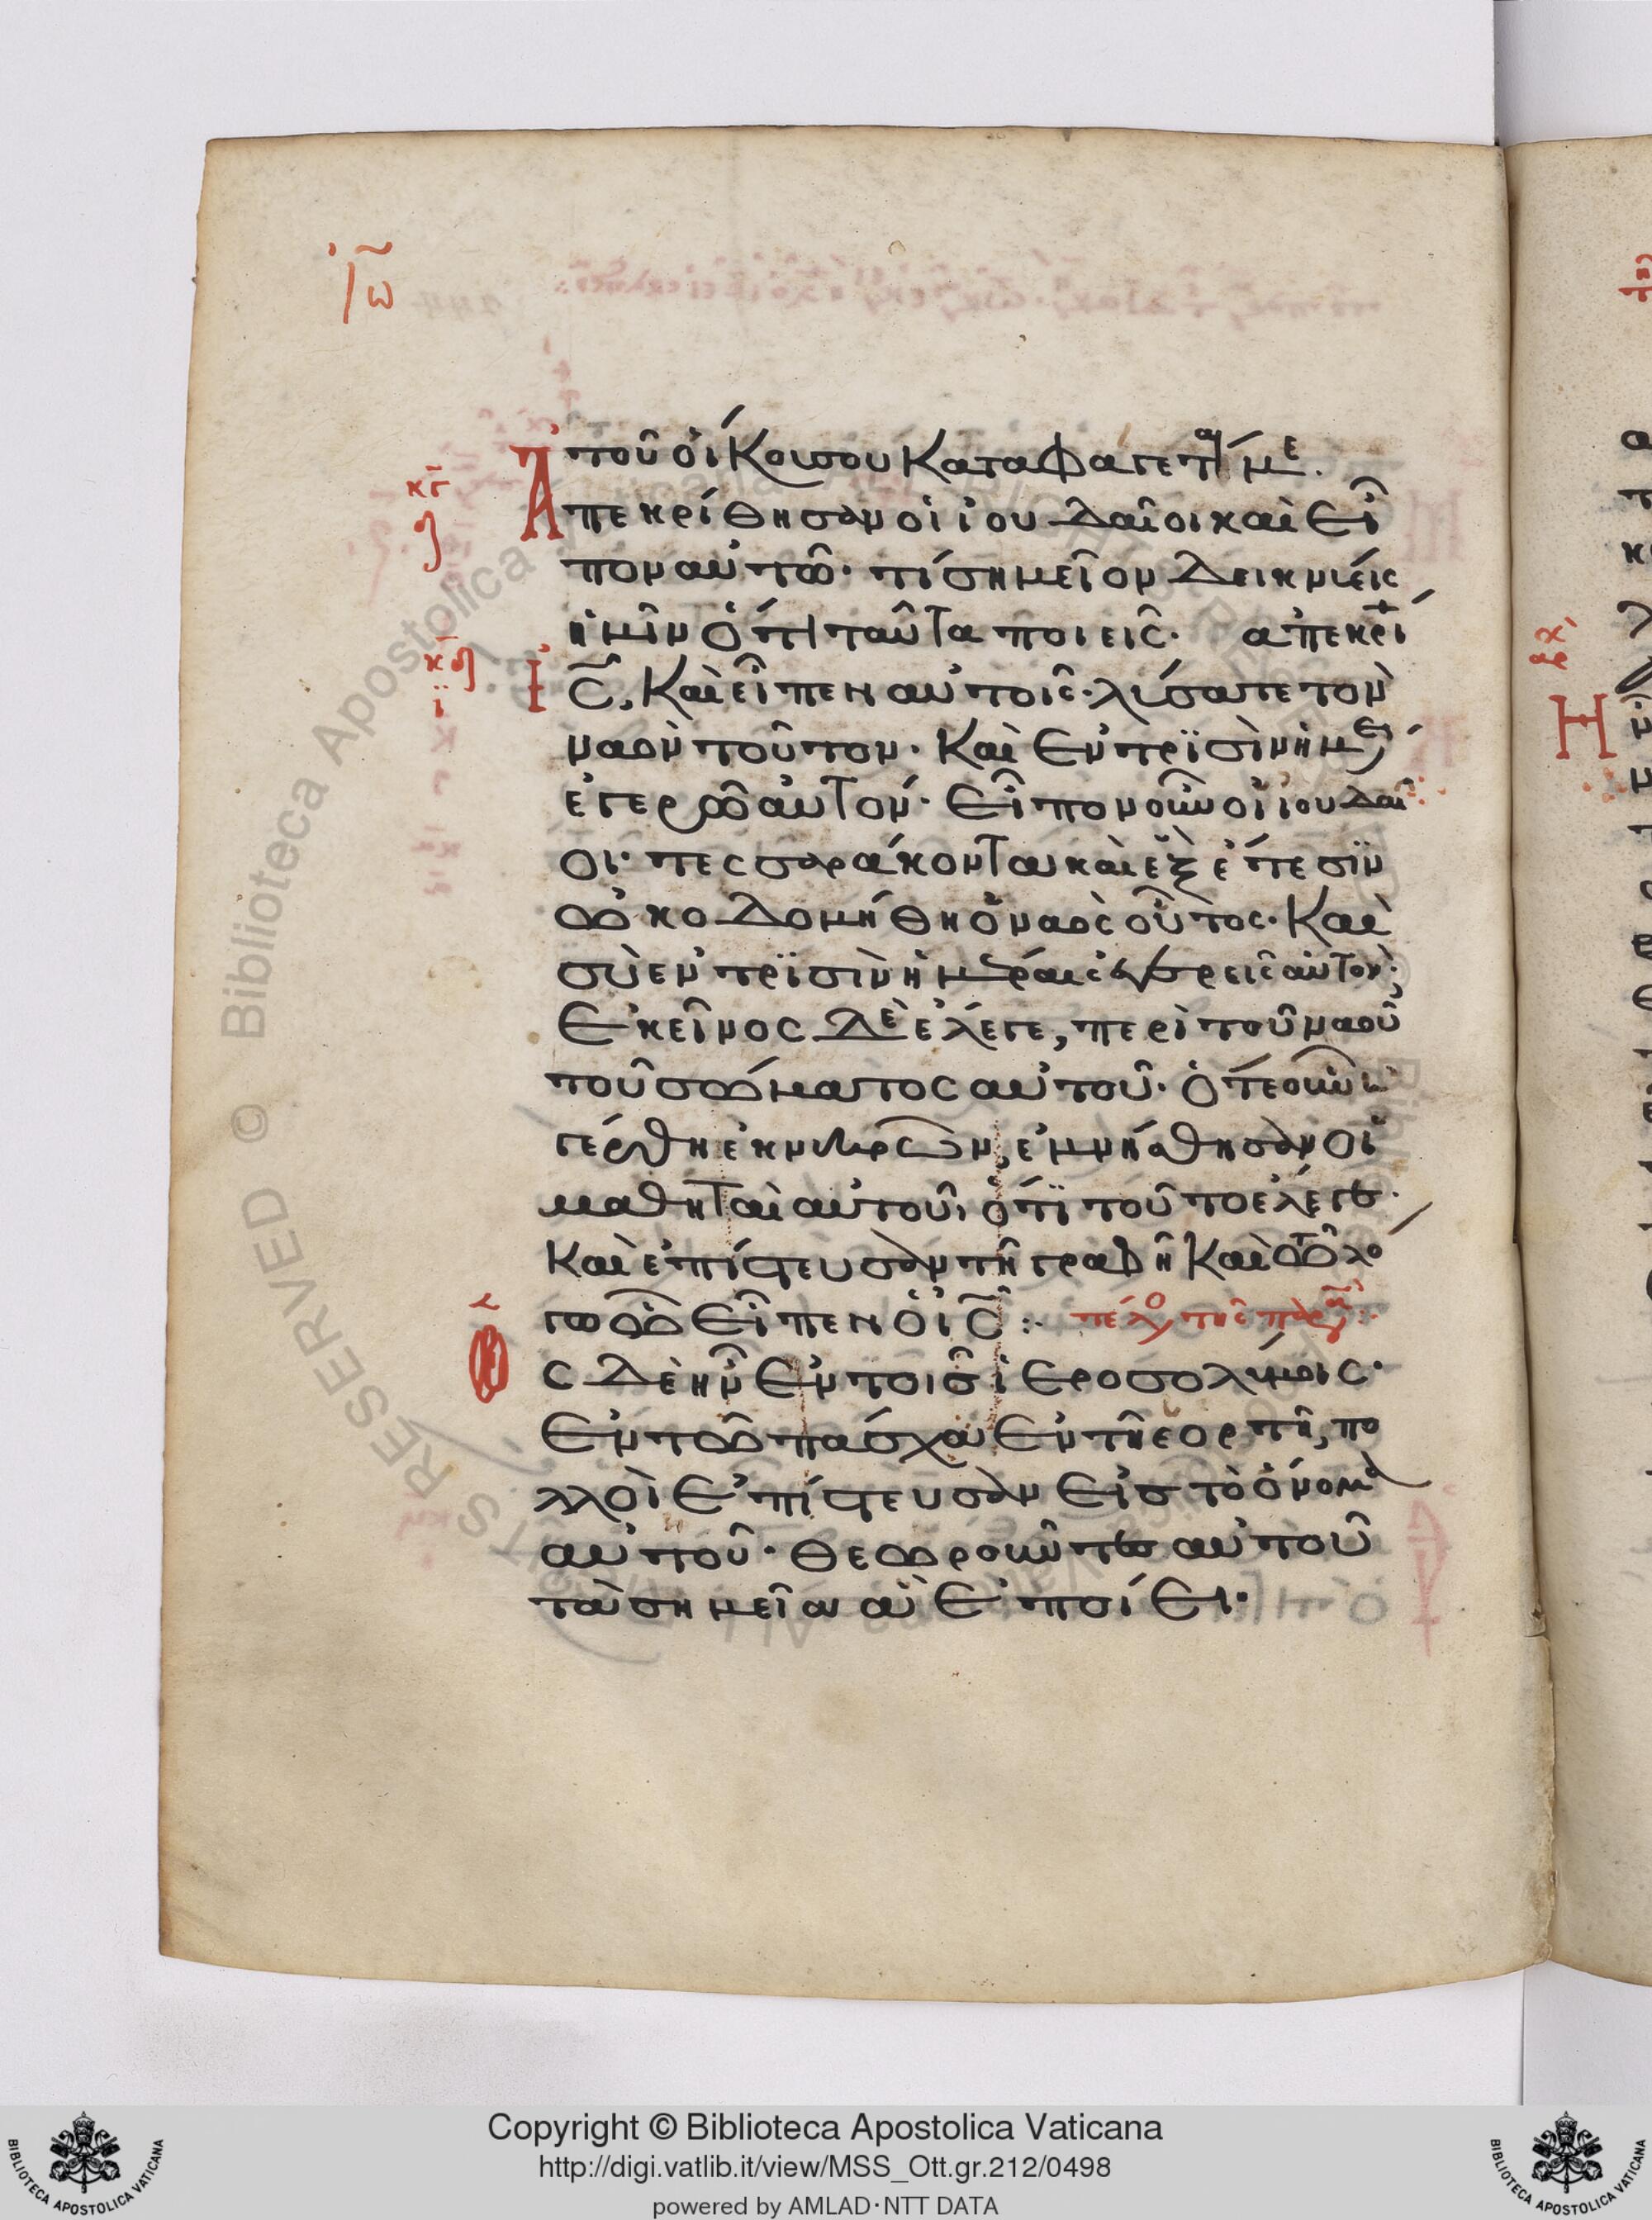 ἰω̃
τοῦ οἴκου σου καταφάγεταί με.
κγ Ἀπεκρίθησαν οἱ ἰουδαῖοι καὶ εἶ
πον αὐτῶ· τί σημεῖον δεικνύεις
ἡμῖν ὅτι ταῦτα ποιεῖς· ἀπεκρί
κδ ι Ἰς̃, καὶ εἶπεν αὐτοῖς· λύσατε τὸν
ναὸν τοῦτον· καὶ ἐν τρϊσὶν ἡμέ
ἐγερῶ αὐτόν· εἶπον οὖν οἱ ἰουδαῖ
οι· τεσσαράκοντα καὶ ἓξ ἔτεσϊν
ὠκοδομήθη ὁ ναὸς οὗτος· καὶ
σὺ ἐν τρϊσὶν ἡμέραις ἐγερεῖς αὐτόν;
ἐκεῖνος δὲ ἔλεγε, περὶ τοῦ ναοῦ
τοῦ σώματος αὐτοῦ· ὅτε οὖν ἠ
γέρθη ἐκ νεκρῶν, ἐμνήσθησαν οἱ
μαθηταὶ αὐτοῦ, ὅτϊ τοῦτο ἔλεγεν·
καὶ ἐπίστευσαν τῆ γραφῆ καὶ τῶ λό
γω ὧ εἶπεν ὁ ις̃ :· τέλος τῆς παρασ :·
Ὡς δὲ ἦν ἐν τοῖς ἱεροσολύμοις·
ἐν τῶ πάσχα ἐν τῆ ἑορτῆ, πο
λλοὶ ἐπίστευσαν εἰς τὸ ὄνομα
αὐτοῦ· θεωροῦντες αὐτοῦ
τὰ σημεῖα ἃ ἐποίει·
Copyright © Biblioteca Apostolica Vaticana
http://digi.vatlib.it/view/MSS_Ott.gr.212/0498
powered by AMLAD·NTT DATA